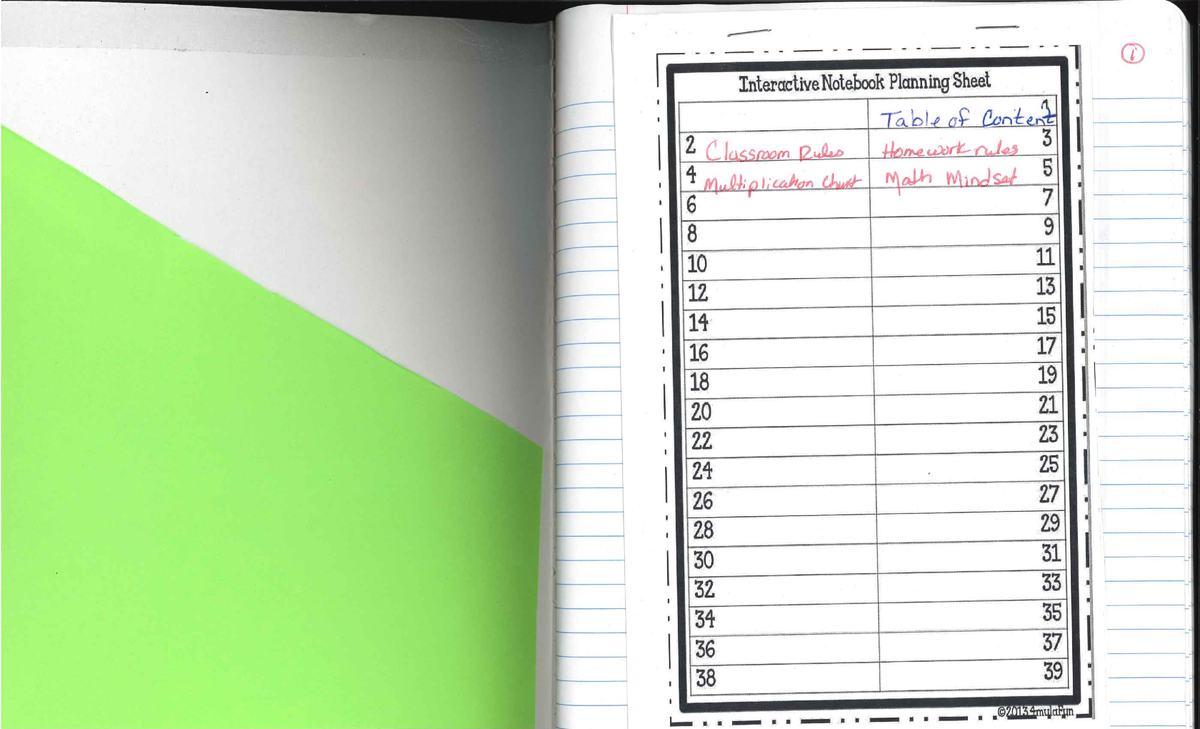 1
Interactive Notebook Planning Sheet
Table of Content 1
2 Classroom Rules Homework rules 3
4 Multiplication Chart Math Mindset 5
6 7
8 9
10 11
12 13
14 15
16 17
18 19
20 21
22 23
24 25
26 27
28 29
30 31
32 33
34 35
36 37
38 39
©2013 4mulaFun